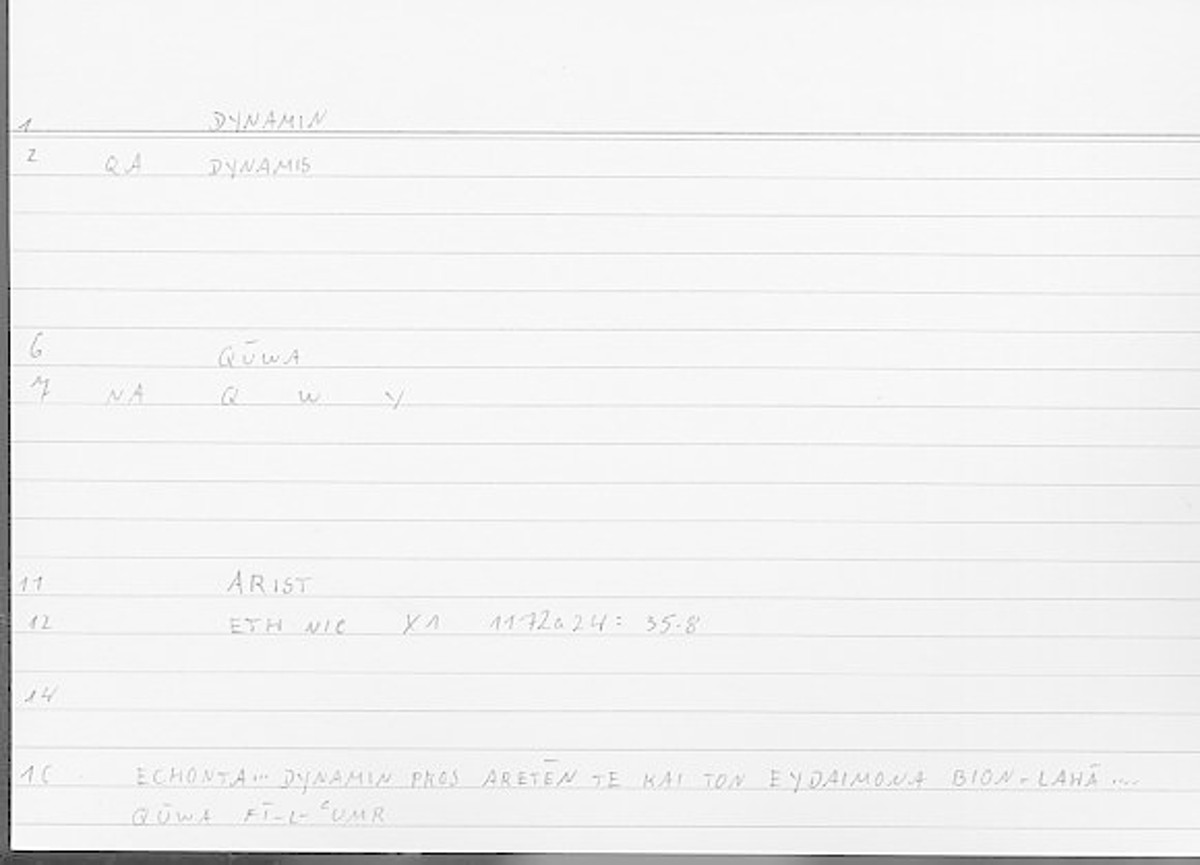 1 DYNAMIN
2 QA DYNAMIS
6 QŪWA
7 NA Q W Y
11 ARIST
12 ETH NIC X1 1172a24: 35.8
14
ECHONTA... DYNAMIN PROS ARETĒN TE KAI TON EYDAIMONA BION - LAHĀ ....
QŪWA FĪ-L-ʿUMR